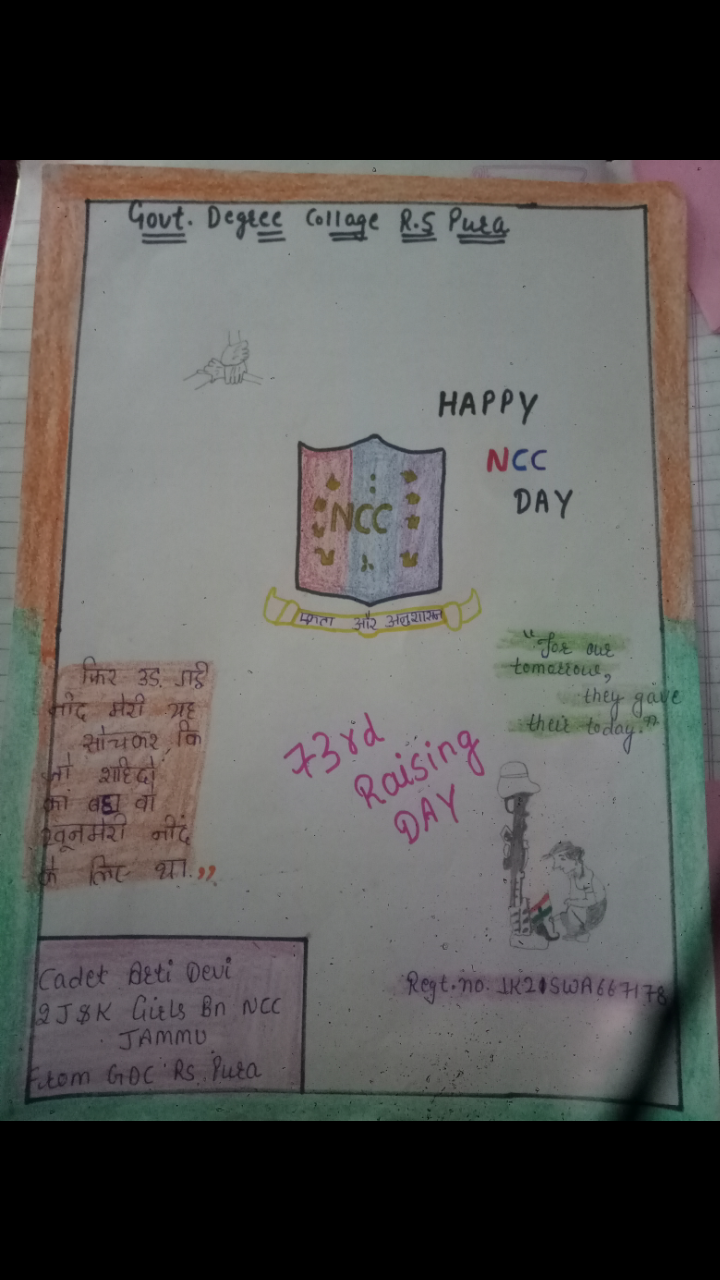 Govt. Degree Collage R.S Pura
HAPPY
NCC
DAY
NCC
एकता और अनुशासन
"for our
tomorrow,
they gave
their today."
फिर उड़ गई
नींद मेरी यह
सोचकर, कि
जो शहिदो
का बहा वो
खून मेरी नींद
के लिए था.,,
73rd
Raising
DAY
Cadet Arti Devi
2 J&K Girls Bn NCC
JAMMU
From GDC RS Pura
Regt. no. JK21SWA667178